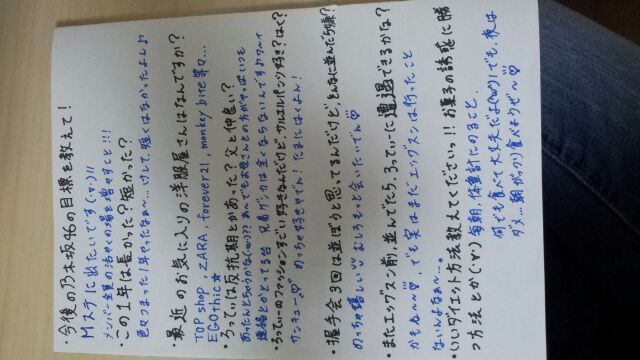 ・今後の乃木坂46の目標を教えて!
Mステに出たいです(・∀・)!!
メンバー全員の活やくの場を増やすこと!!!
・この1年は長かった?短かった?
色々つまった1年やったなぁ〜、けして、短くはなかったよん♪
・最近のお気に入りの洋服屋さんはなんですか?
TOP shop、ZARA、forever21、monkey bite 等々…
EGOthic★
・ろってぃーは反抗期とかあった?父と仲良い?
あったんとちゃうかな(・ω・)??あんでもお母さんとの方がやっぱいつも
連絡とかとってる
・ろってぃーのファッションすごい好きなんだけど、サルエルパンツ好き?はく?
サンキュー♡ めっちゃ好きやで!たまにはくよん!
・握手会3回は並ぼうと思ってるんだけど、そんなに並んだら嫌?
めっちゃ嬉しい♡むしろもっと会いたいでん♡
・またエッグスン前、並んでたら、ろってぃーに遭遇できるかな?
かもね〜♡、でも実はまだエッグスンは行ったこと
ないんよなぁ〜。
いいダイエット方法教えてくださいっ!!お菓子の誘惑に勝
つ方法とか(・∀・) 毎朝、体重計にのること、
何でも食べて大丈夫だよ(・ω・)ノでも、夜は
ダメ…朝がっつり食べようぜ〜♡